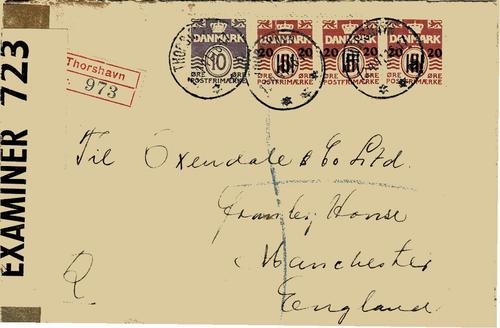 EXAMINER 723
Thorshavn
973
DANMARK DANMARK DANMARK DANMARK
10 20 20 20 20
ØRE ØRE ØRE ØRE
POSTFRIMÆRKE POSTFRIMÆRKE POSTFRIMÆRKE POSTFRIMÆRKE
Til Oxendale & Co Ltd.
House
Manchester
England
R